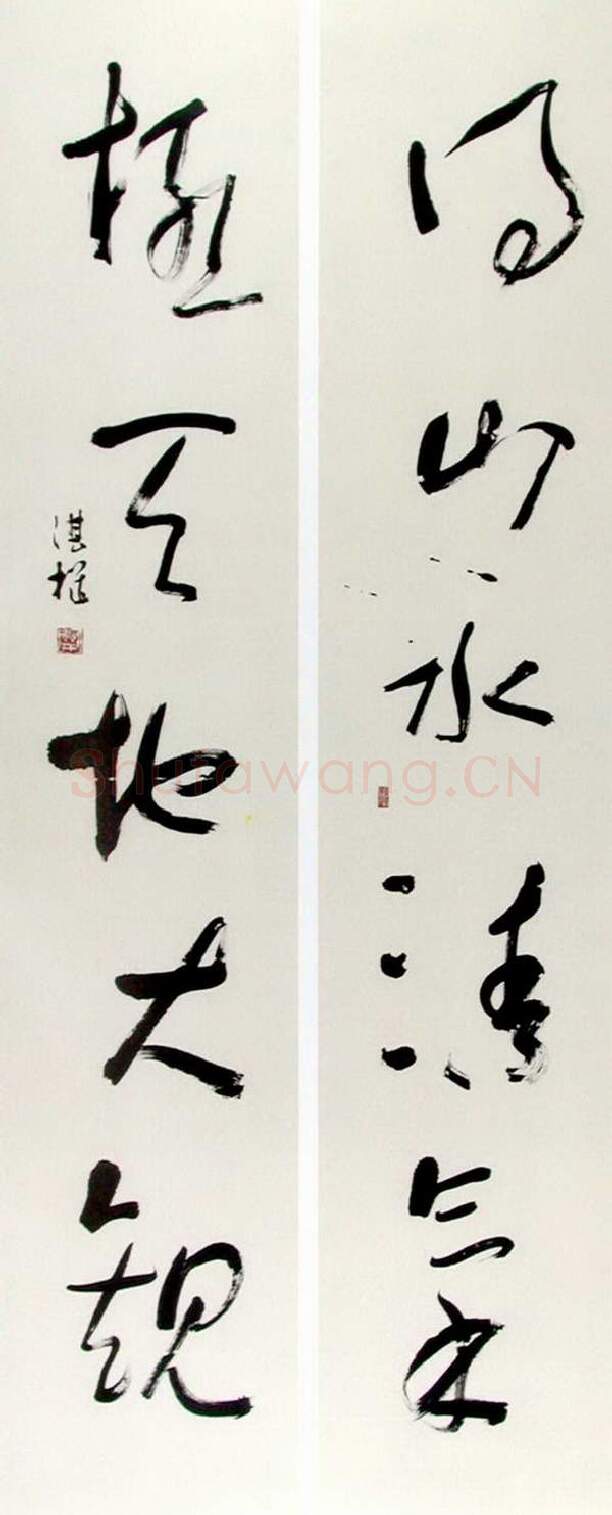 得山水清氣
極天地大觀
Shufawang.CN